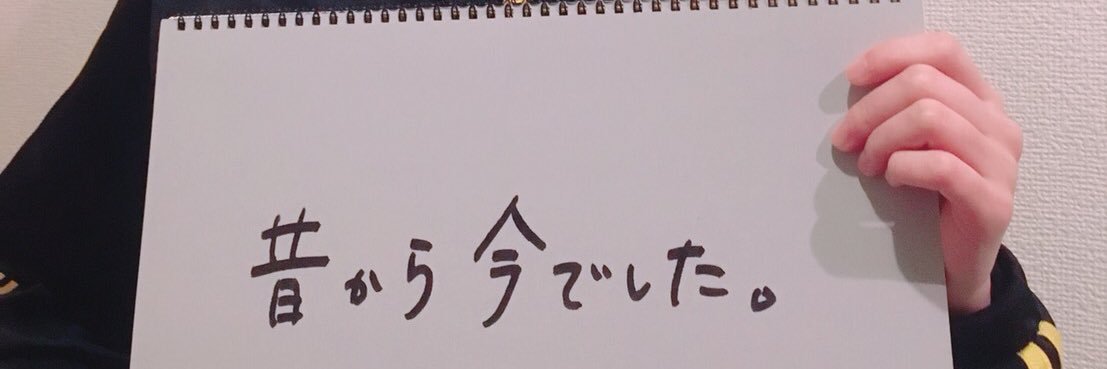 昔から今でした。